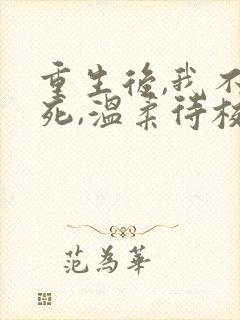 重生後,我不
死,溫柔待校
范為華